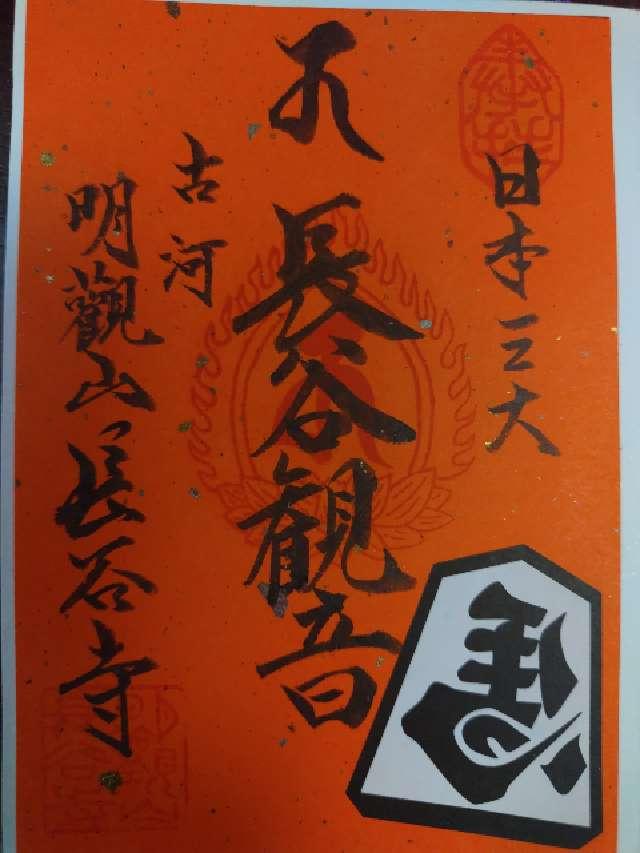 日本三大
長谷観音
古河
明觀山長谷寺